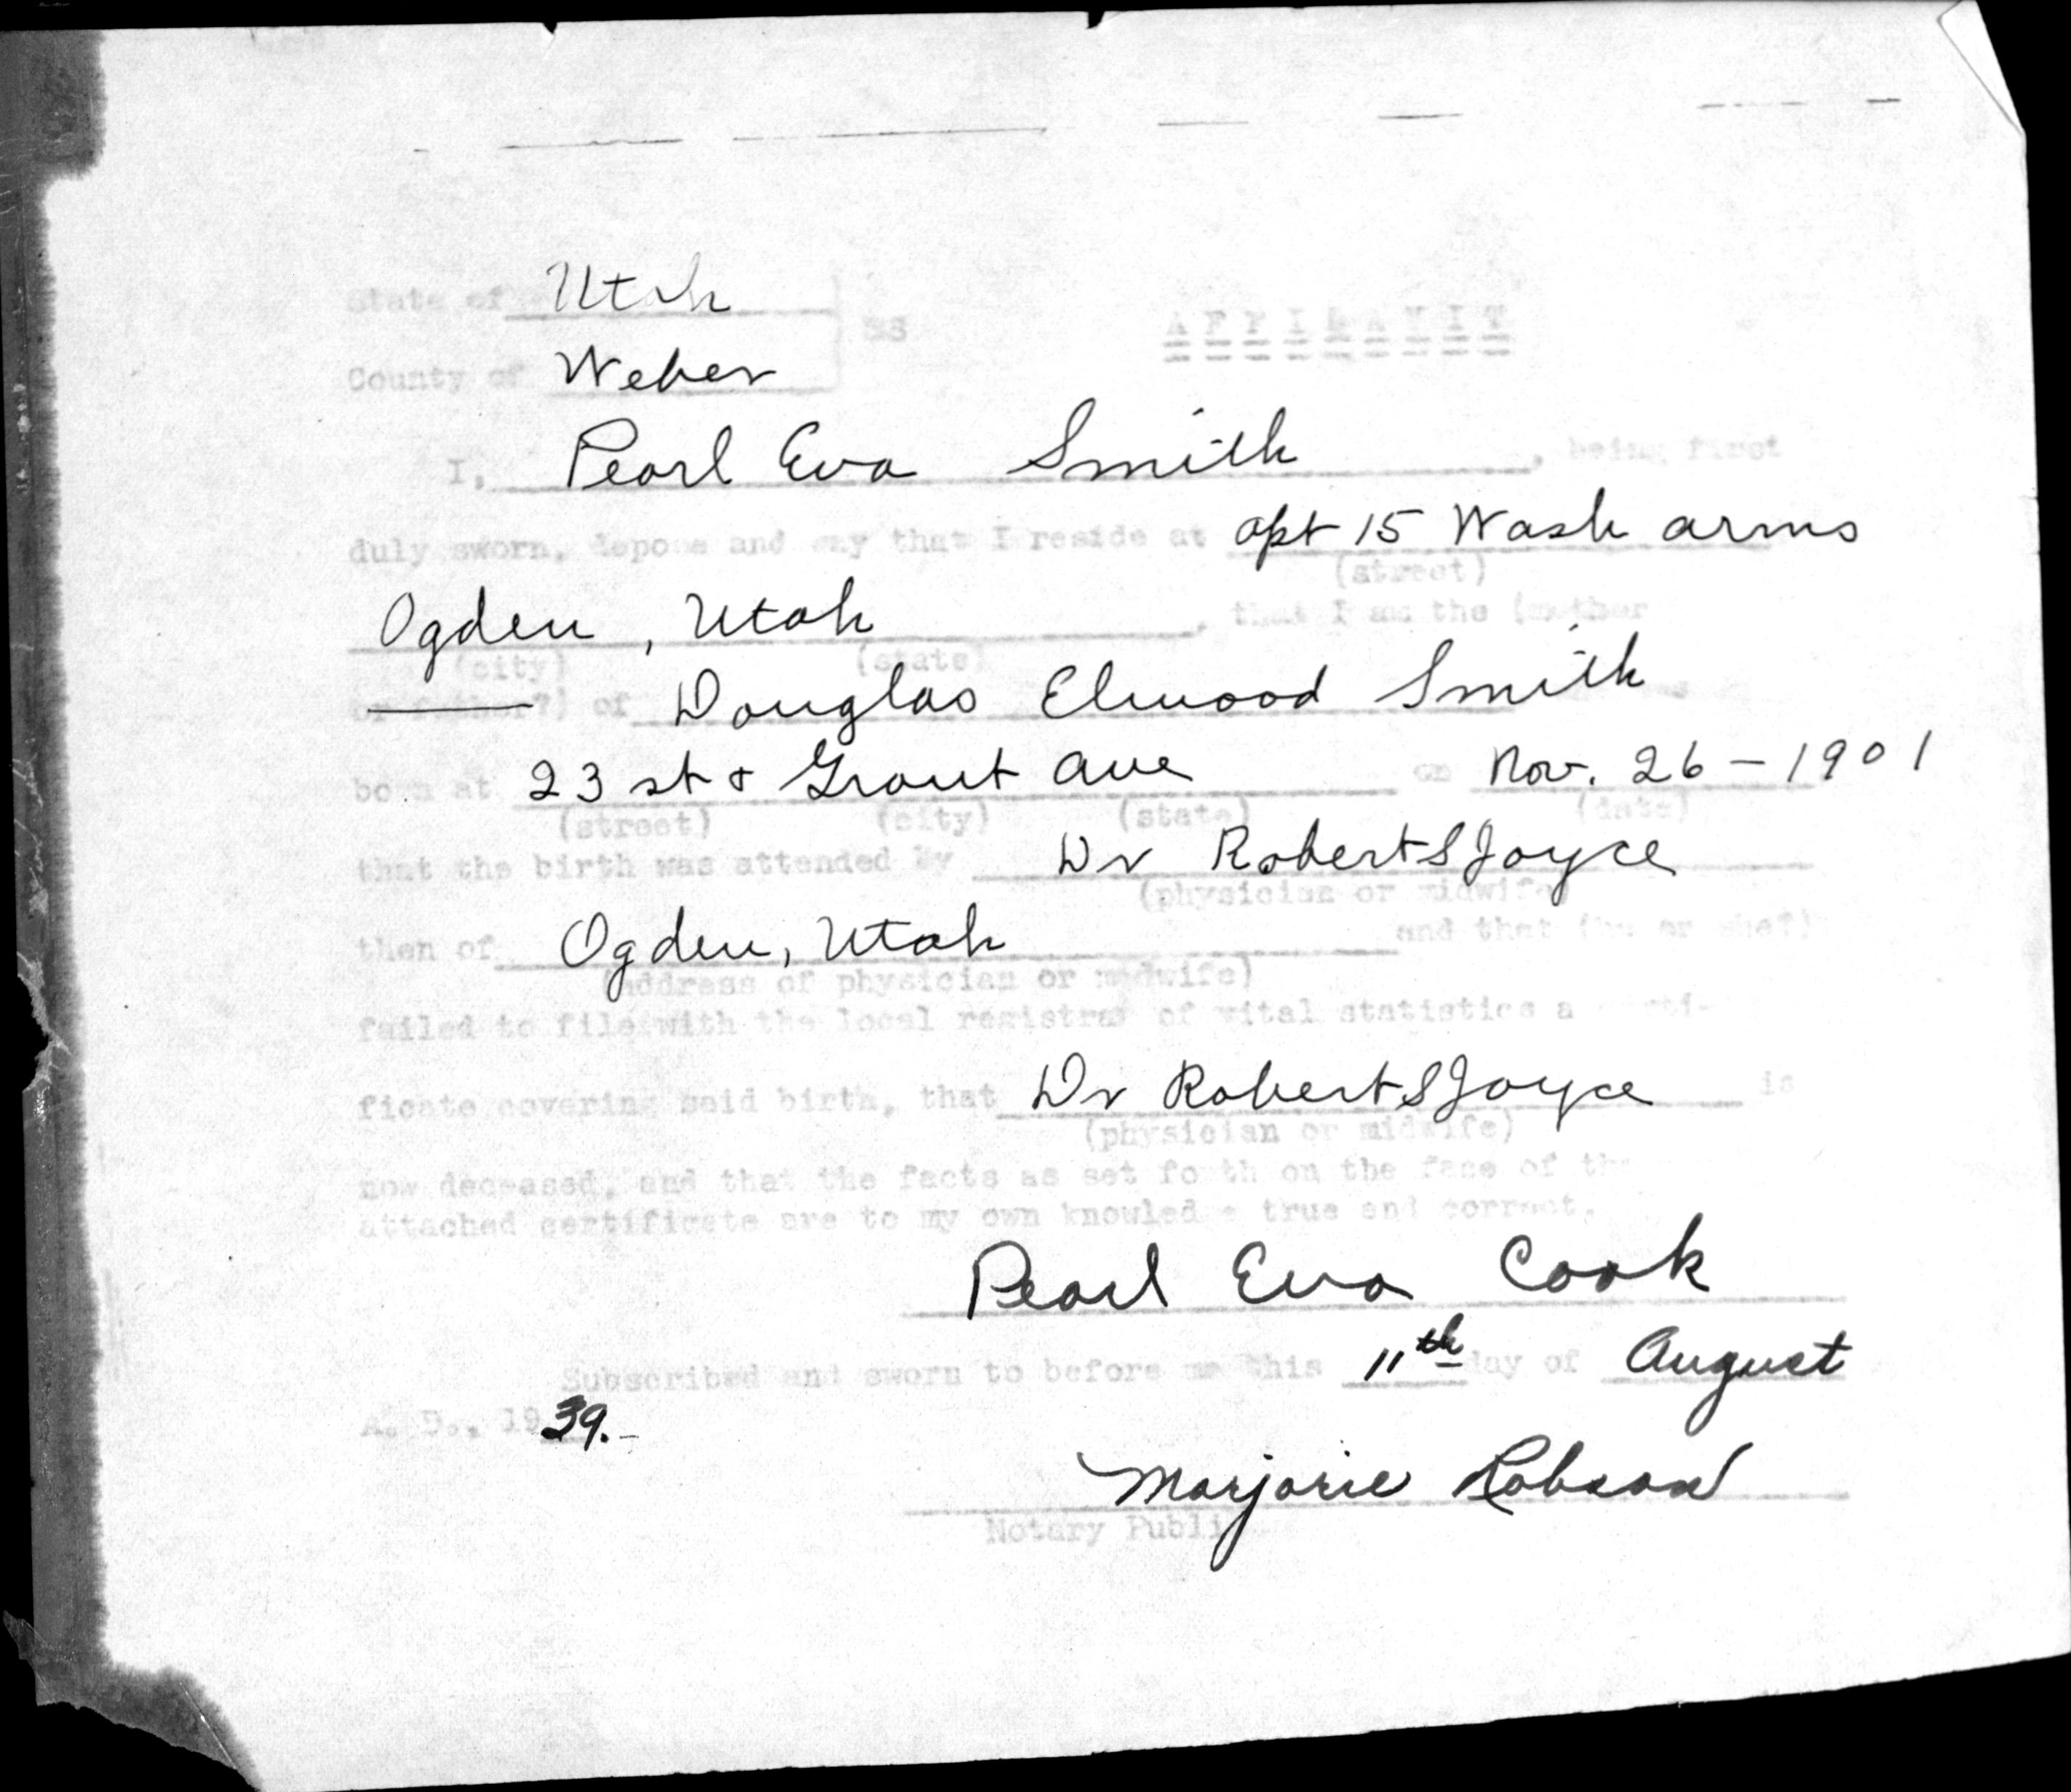 State of Utah
SS
AFFIDAVIT
County of Weber
I, Pearl Eva Smith, being first
duly sworn, depose and say that I reside at apt 15 Wash arms
(street)
Ogden, Utah, that I am the (mother
(city) (state)
or father?) of Douglas Elwood Smith was
born at 23 st & Grant ave on Nov. 26 - 1901
(street) (city) (state) (date)
that the birth was attended by Dr Robert S Joyce
(physician or midwife)
then of Ogden, Utah and that (he or she?)
(address of physician or midwife)
failed to file with the local registrar of vital statistics a certi-
ficate covering said birth, that Dr Robert S Joyce is
(physician or midwife)
now deceased, and that the facts as set forth on the face of the
attached certificate are to my own knowledge true and correct.
Pearl Eva Cook
Subscribed and sworn to before me this 11th day of August
A. D., 1939.
Marjorie Robson
Notary Public